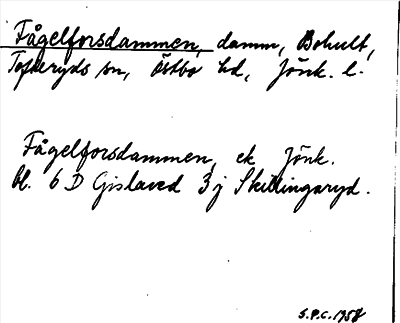 Fågelforsdammen, damm, Bohult,
Tofteryds sn, Östbo hd, Jönk. l.
Fågelforsdammen, ek Jönk.
bl. 6 D Gislaved 3 j Skillingaryd.
S.P.C. 1958